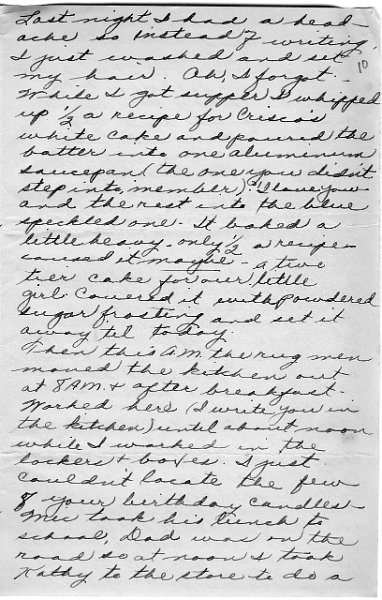 Last night I had a head-
ache so instead of writing,
I just washed and set
my hair. Oh, I forgot - 10
While I got supper I whipped
up 1/2 a recipe for Crisco's
white cake and poured the
batter into one aluminum
saucepan (the one you didn't
step into, member) I love you
and the rest into the blue
speckled one - It baked a
little heavy - only 1/2 a recipe -
caused it maybe - a two
tier cake for our little
girl. Covered it with powdered
sugar frosting and set it
away 'til today.
Then this A.M. the rug men
moved the kitchen out
at 8 AM. & after breakfast.
Worked here (I write you in
the kitchen) until about noon
while I worked in the
lockers & boxes. I just
couldn't locate the few
of your birthday candles -
Mic took his lunch to
school, Dad was on the
road so at noon I took
Kathy to the store to do a